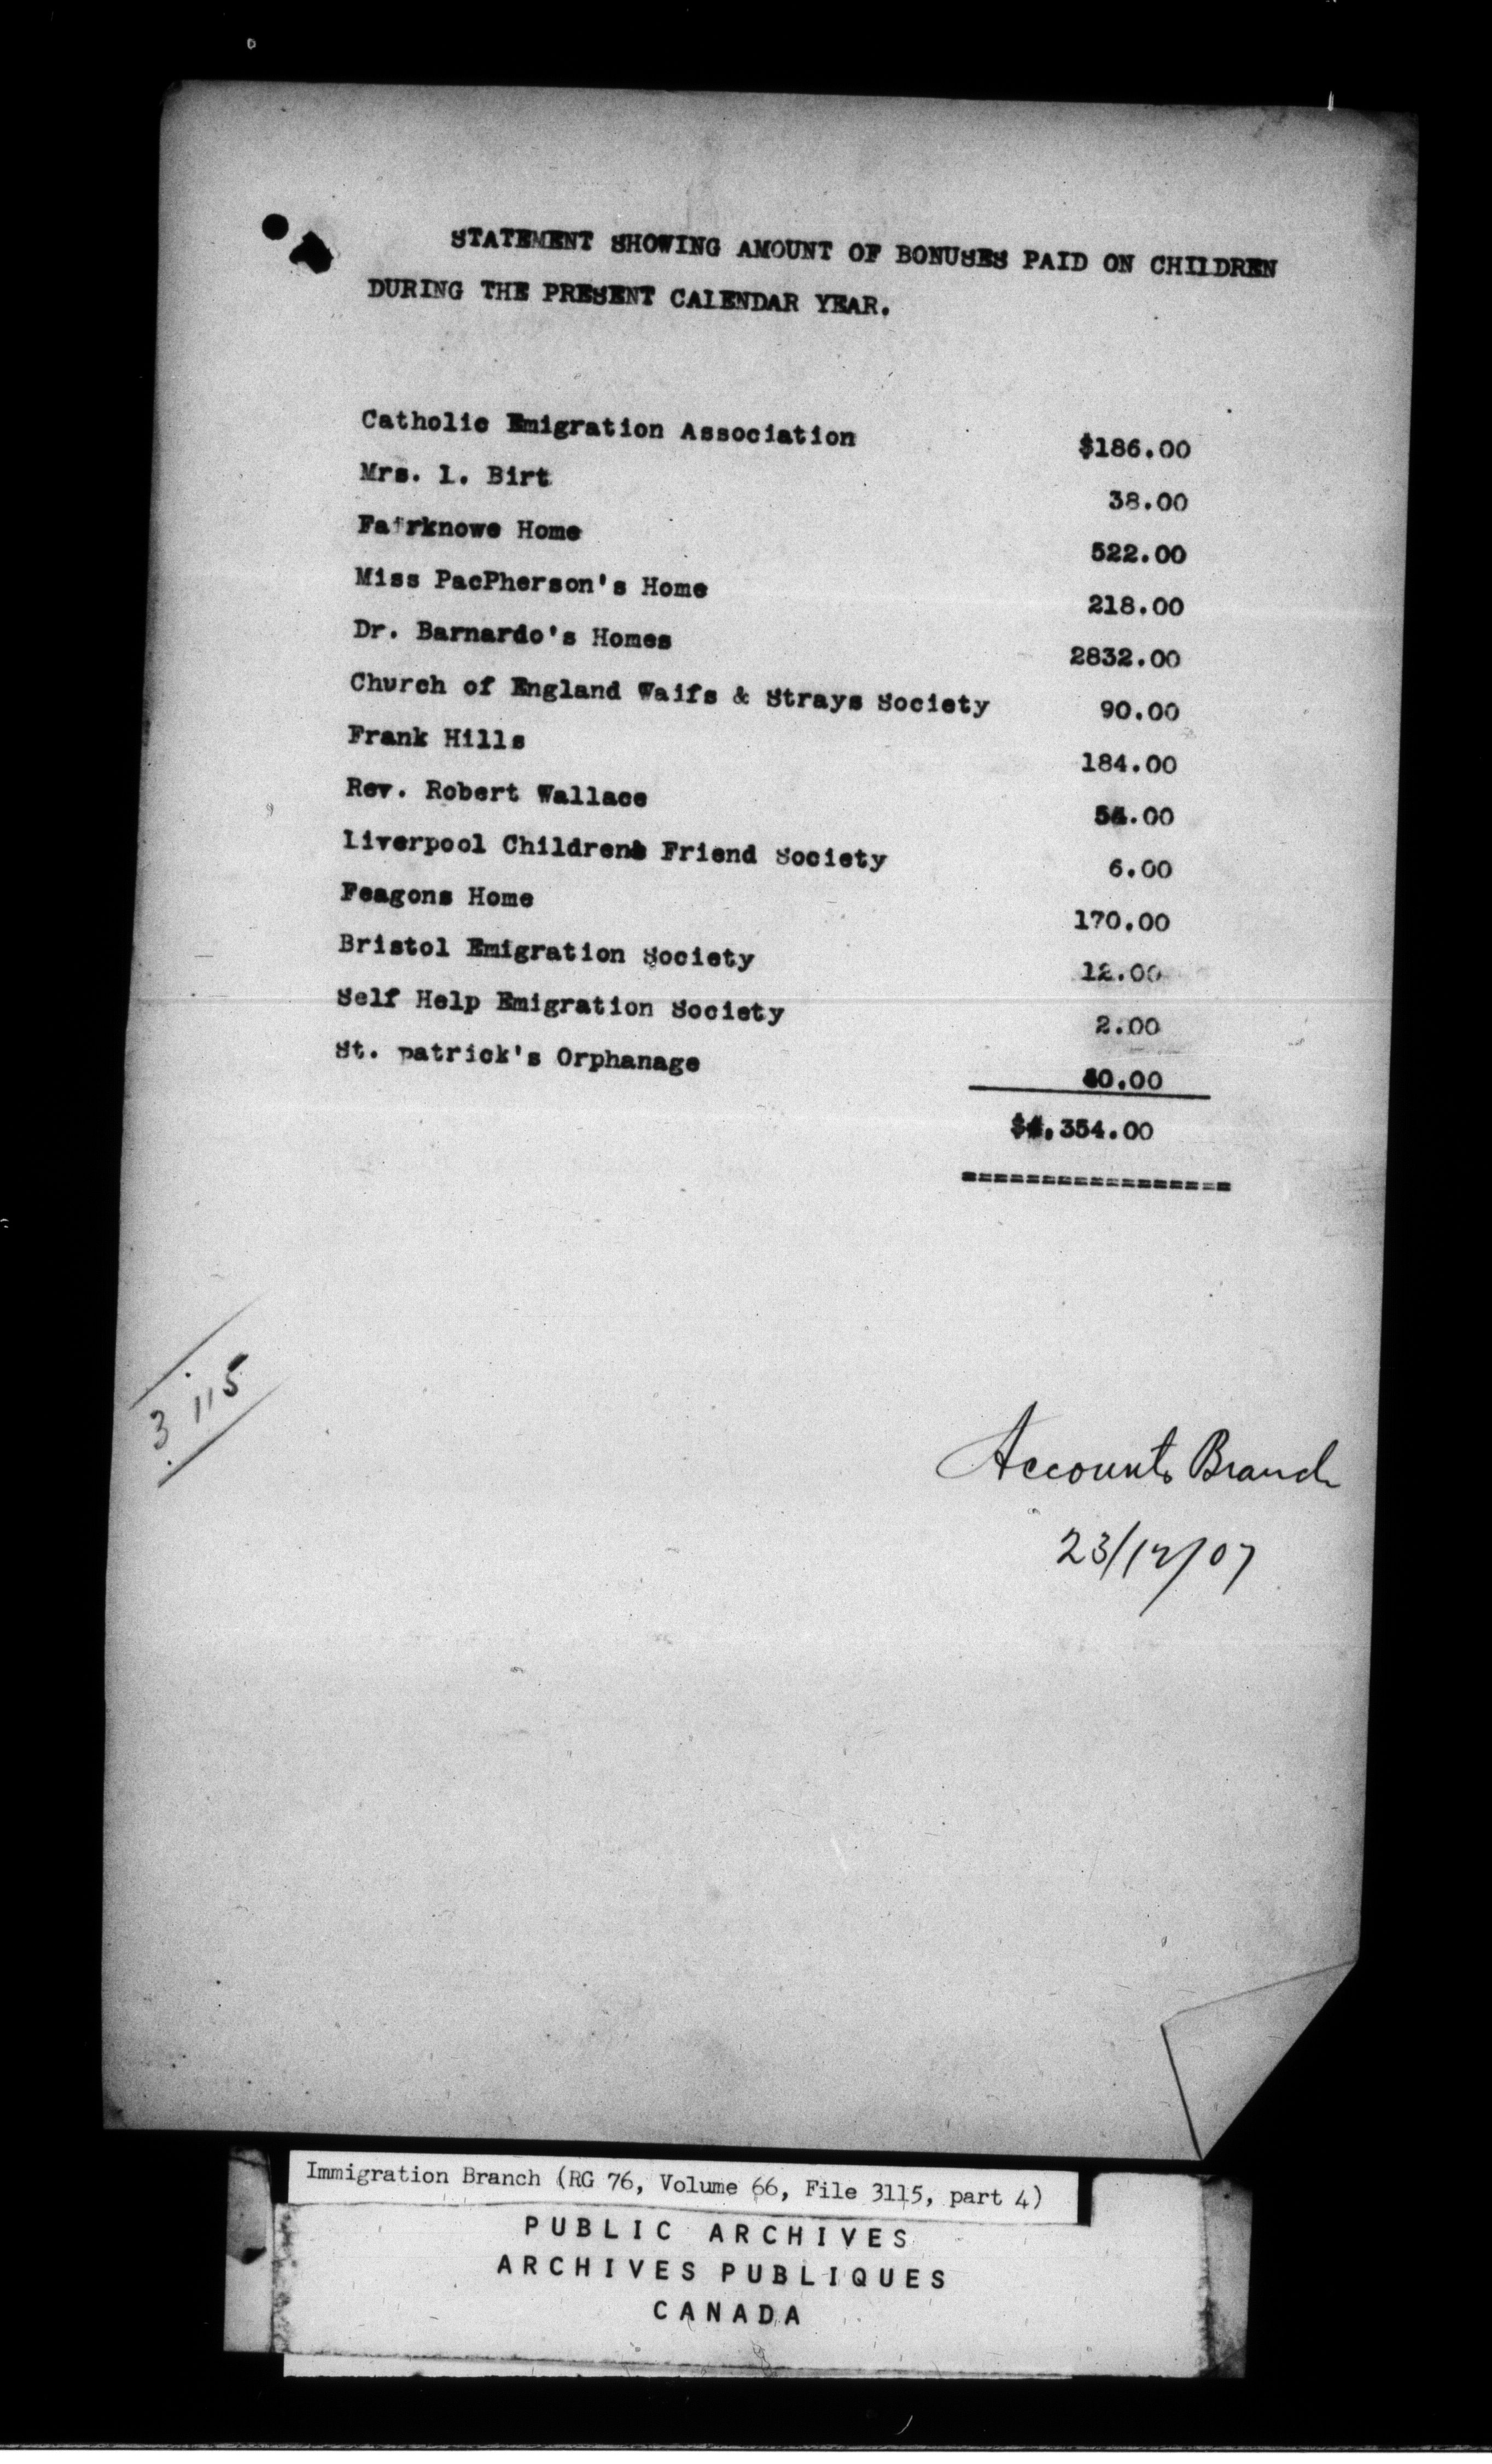 STATEMENT SHOWING AMOUNT OF BONUSES PAID ON CHILDREN
DURING THE PRESENT CALENDAR YEAR.
Catholic Emigration Association $186.00
Mrs. L. Birt 38.00
Fairknowe Home 522.00
Miss PacPherson's Home 218.00
Dr. Barnardo's Homes 2832.00
Church of England Waifs & Strays Society 90.00
Frank Hills 184.00
Rev. Robert Wallace 54.00
Liverpool Childrens Friend Society 6.00
Feagons Home 170.00
Bristol Emigration Society 12.00
Self Help Emigration Society 2.00
St. patrick's Orphanage 40.00
$4,354.00
3115
Accounts Branch
23/12/07
Immigration Branch (RG 76, Volume 66, File 3115, part 4)
PUBLIC ARCHIVES
ARCHIVES PUBLIQUES
CANADA